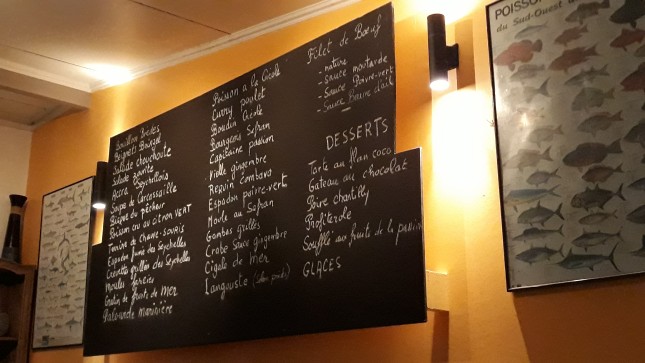 Bouillon Bredes
Beignets Bourgot
Salade chouchoute
Salade Palmiste
Accra Seychellois
Soupe de Carcassaille
Bisque du pêcher
Poisson cru au citron VERT
Terrine de Chauve-SOURIS
Espadon fumé des Seychelles
Crevettes grillées des Seychelles
Moules farcies
Gratin de fruits de MER
Palourde marinière
Poisson a la Créole
Curry poulet
Boudin Créole
Bourgeois Safran
Capitaine passion
Vielle gingembre
Requin combava
Espadon poivre-vert
Moule au Safran
Gambas grillés
Crabe Sauce gingembre
Cigale de MER
Langouste (selon poids)
Filet de Boeuf
- nature
- sauce moutarde
- sauce Poivre-vert
- Sauce Beurre d'ail
DESSERTS
Tarte au flan coco
Gateau au chocolat
Poire chantilly
Profiterole
Soufflé aux fruits de la passion
GLACES
POISSONS
du Sud-Ouest de